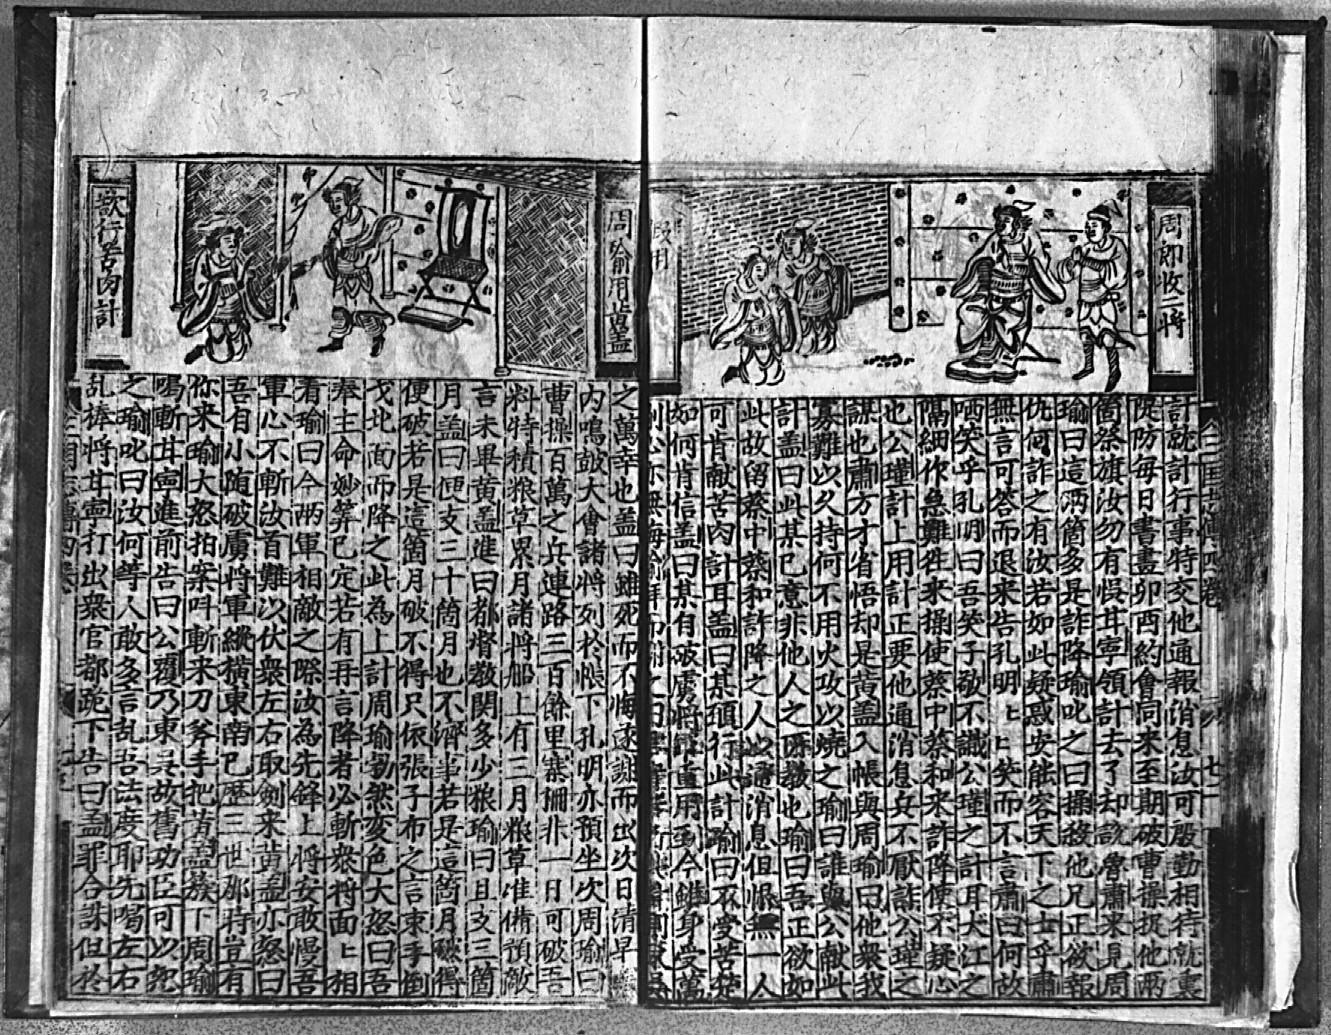 周郎收二将
計就計行事特交他通報消息汝可殷勤相待就裏
隄防每日書畫卯酉約會同来至期破曹操捉他兩
箇祭旗汝勿有悮甘寧領計去了却説魯肅来見周
瑜曰這两箇多是詐降瑜叱之曰操殺他兄正欲報
仇何詐之有汝若如此疑惑安能容天下之士乎肅
無言可答而退来告孔明〻笑而不言肅曰何故
哂笑乎孔明曰吾笑子敬不識公瑾之計耳大江之
隔細作急難徃来操使蔡中蔡和来詐降使不疑心
也公瑾計上用計正要他通消息女不厭詐公瑾之
謀也肅方才省悟却是黄蓋入帳與周瑜曰他衆我
寡難以久持何不用火攻以燒之瑜曰誰與公献此
計盖曰此某已意非他人之所教也瑜曰吾正欲如
此故留蔡中蔡和詐降之人以通消息但恨無一人
可肯献苦肉計耳盖曰某湏行此計瑜曰不受苦楚
如何肯信盖曰某自破虜將軍重用到今雖身受萬
心亦無悔瑜拜而謝之曰
假用
周瑜用黄盖
之萬幸也盖曰雖死而不悔遂謝而出次日清早
内鳴鼓大會諸将列於帳下孔明亦預坐次周瑜曰
曹操百萬之兵連路三百餘里寨栅非一月可破吾
料特積粮草累月諸将船上有三月粮草准俻預敵
言未畢黄盖進曰都督教関多少粮瑜曰且支三箇
月盖曰便支三十箇月也不濟事若是這箇月破得
便破若是這箇月破不得只依張子布之言束手倒
戈北面而降之此為上計周瑜勃然変色大怒曰吾
奉主命妙筭已定若有再言降者必斬衆将面〻相
看瑜曰今两軍相敵之際汝為先鋒上将安敢慢吾
軍心不斬汝首難以伏衆左右取劍来黄盖亦怒曰
吾自小随破虜将軍縱横東南已歴三世那時豈有
你来瑜大怒拍案呌斬来刀斧手把黄盖簇下周瑜
喝斬甘寧進前告曰公覆乃東吴故舊功臣可以恕
之瑜叱曰汝何等人敢多言乱吾法度耶先喝左右
乱棒将甘寧打出衆官都跪下告曰盖罪合誅但於
欲行苦肉計
三國志傳四卷